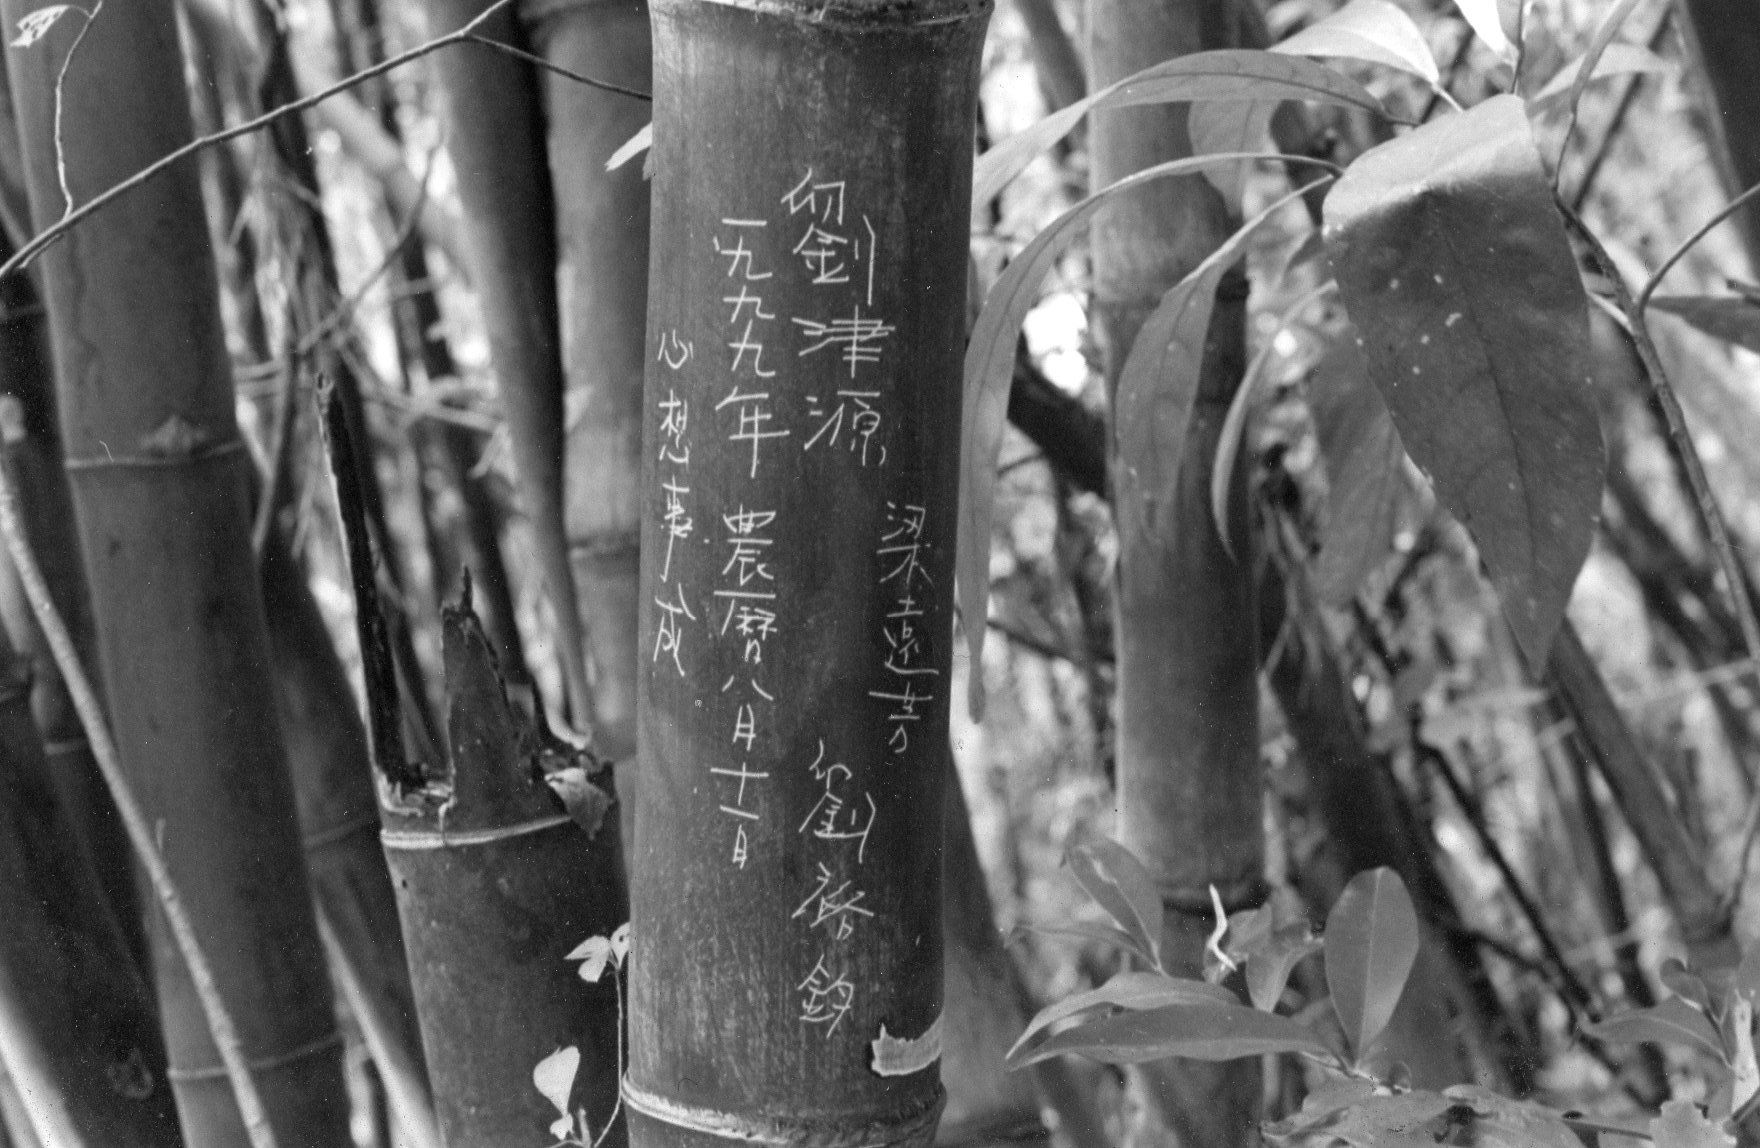 梁遠芳
劉津源
劉 鈞
一九九九年 農曆八月十一日
心想事成